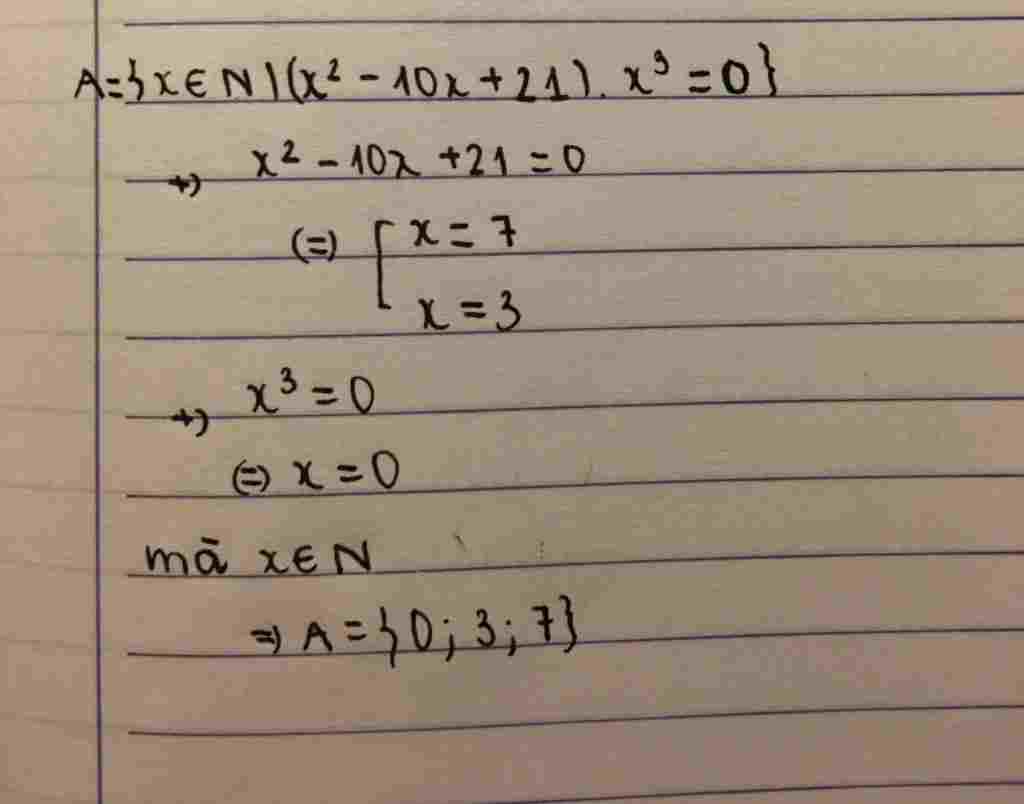 A={x∈N|(x² - 10x + 21). x³ = 0}
+) x² - 10x + 21 = 0
(=) [ x = 7
x = 3
+) x³ = 0
(=) x = 0
mà x∈N
=) A = {0; 3; 7}